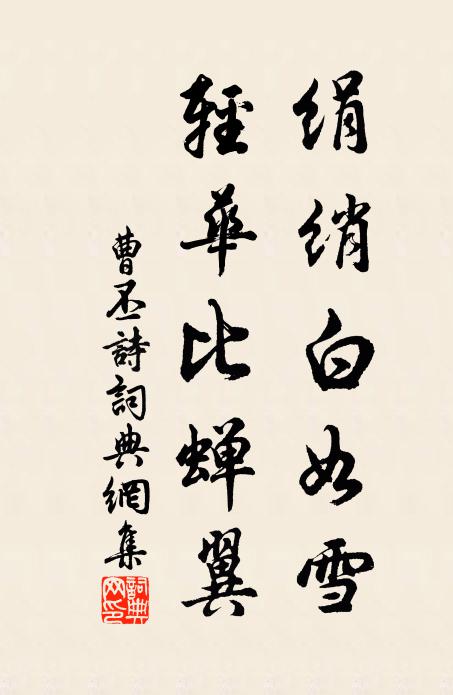 绢绡白如雪
轻华比蝉翼
曹丕詩詞典網集
詞典网印